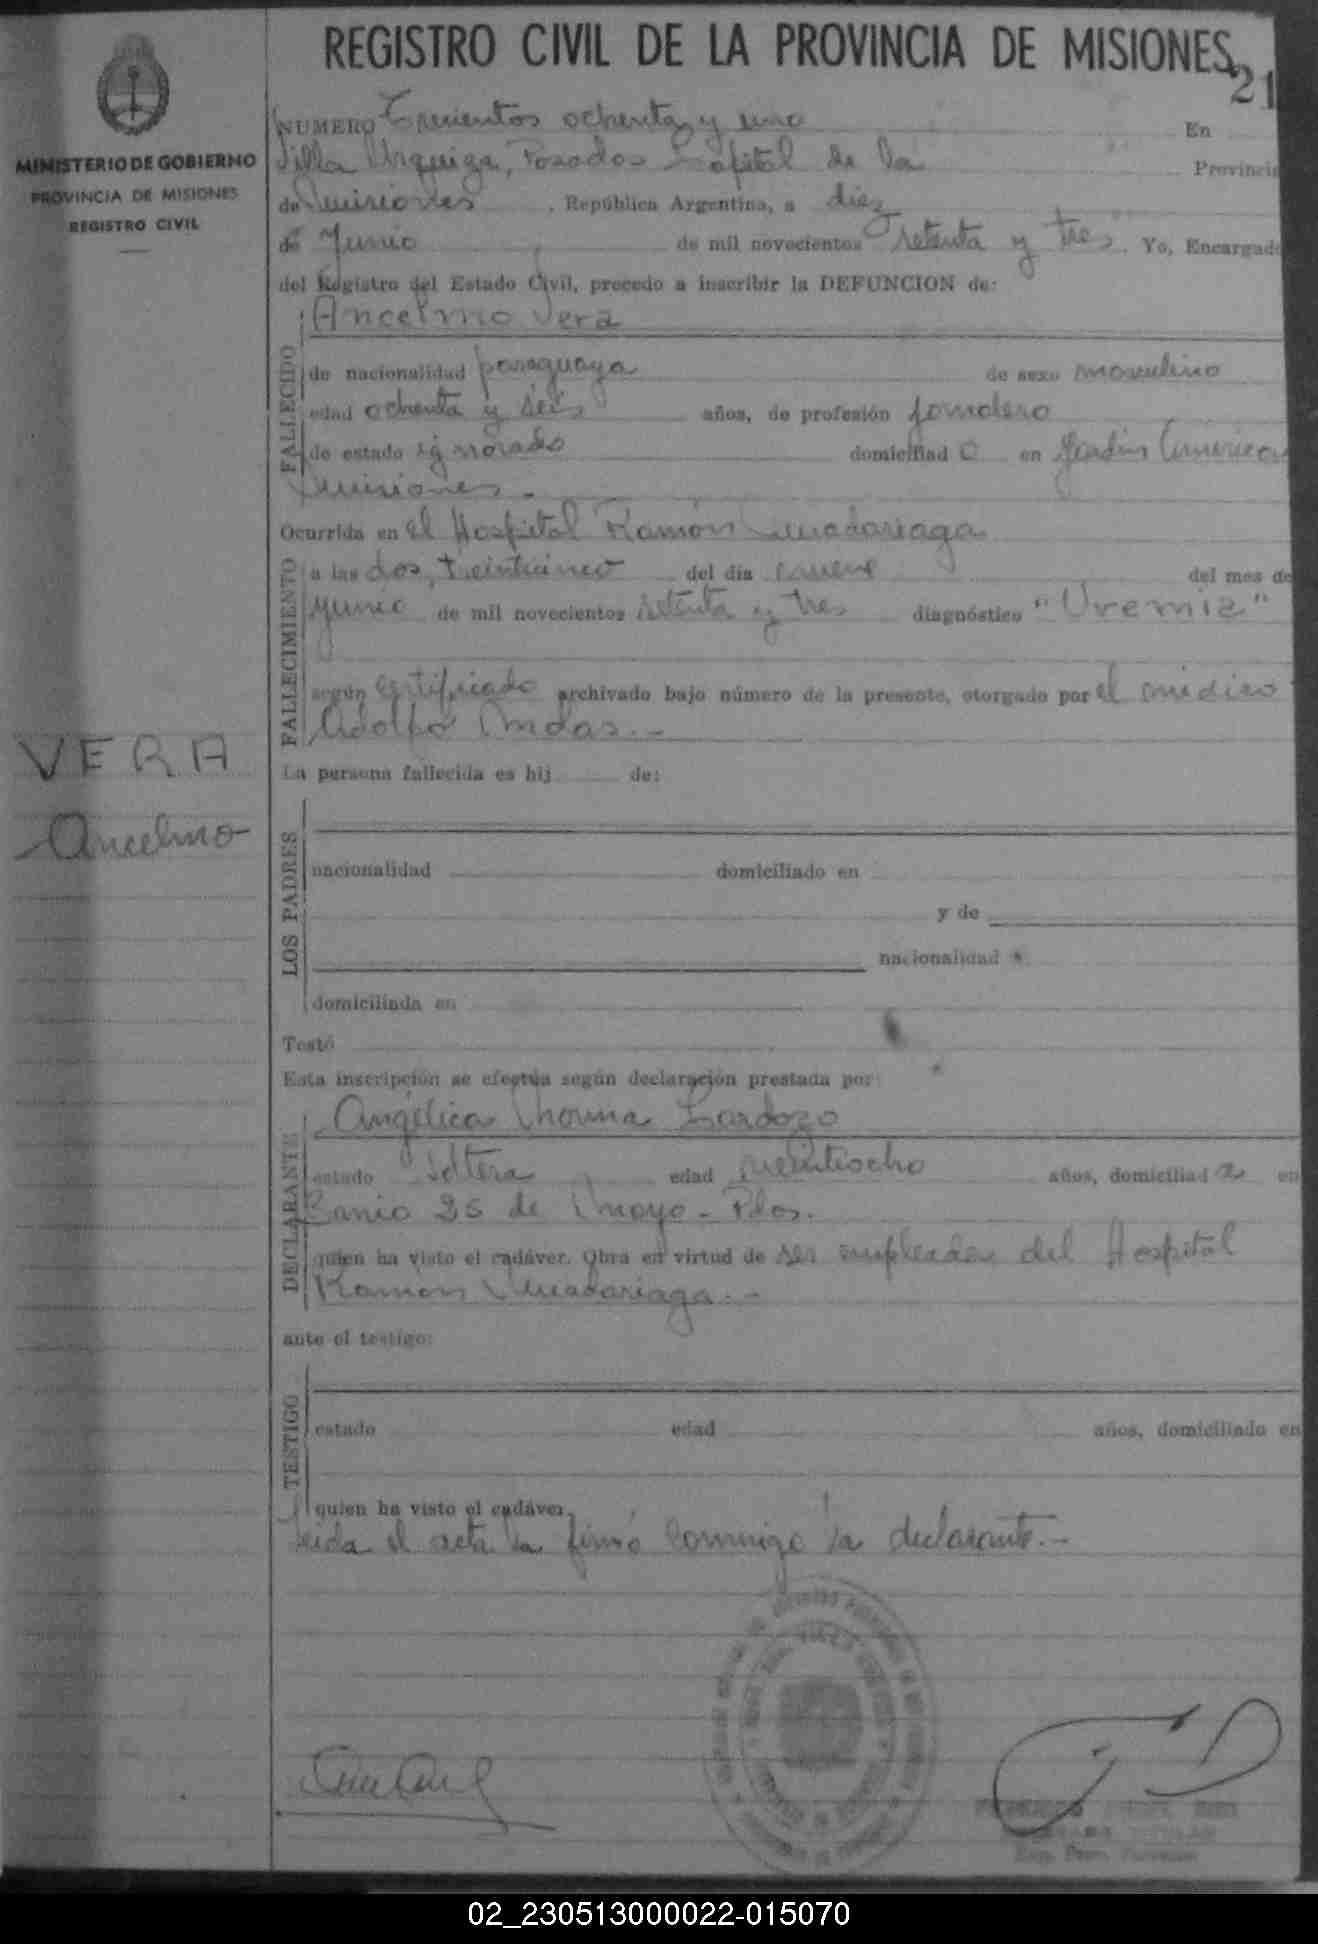 REGISTRO CIVIL DE LA PROVINCIA DE MISIONES
21
MINISTERIO DE GOBIERNO
PROVINCIA DE MISIONES
REGISTRO CIVIL
NUMERO Trescientos ochenta y uno En
Villa Urquiza, Posadas Capital de la Provincia
de Misiones, República Argentina, a diez
de Junio de mil novecientos setenta y tres. Yo, Encargado
del Registro del Estado Civil, procedo a inscribir la DEFUNCION de:
Ancelmo Vera
FALLECIDO
de nacionalidad paraguaya de sexo masculino
edad ochenta y seis años, de profesión
de estado ignorado domiciliad o en Jardín America
Misiones.
Ocurrida en el Hospital Ramón Madariaga
FALLECIMIENTO
a las dos, treinticinco del día nueve del mes de
junio de mil novecientos setenta y tres diagnóstico "Uremia"
según certificado archivado bajo número de la presente, otorgado por el médico
Adolfo
VERA
Ancelmo
La persona fallecida es hij de:
LOS PADRES
nacionalidad domiciliado en
y de
nacionalidad
domiciliada en
Testó
Esta inscripción se efectúa según declaración prestada por:
DECLARANTE
Angélica Norma Cardozo
estado soltera edad veintiocho años, domiciliad a en
Barrio 25 de Mayo - Pdas.
quien ha visto el cadáver. Obra en virtud de ser empleada del Hospital
Ramón Madariaga.-
ante el testigo:
TESTIGO
estado edad años, domiciliado en
quien ha visto el cadáver.
Leida el acta la firmó conmigo la declarante.-
02_230513000022-015070